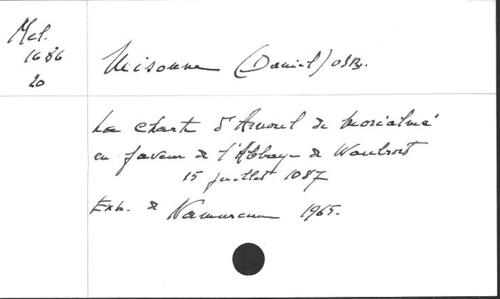 Mel.
1686
20
Misonne (Daniel) OSB.
La charte d'Arnoul de Morialmé
en faveur de l'Abbaye de Waulsort
15 juillet 1087
Extr. de Namurcum 1965.